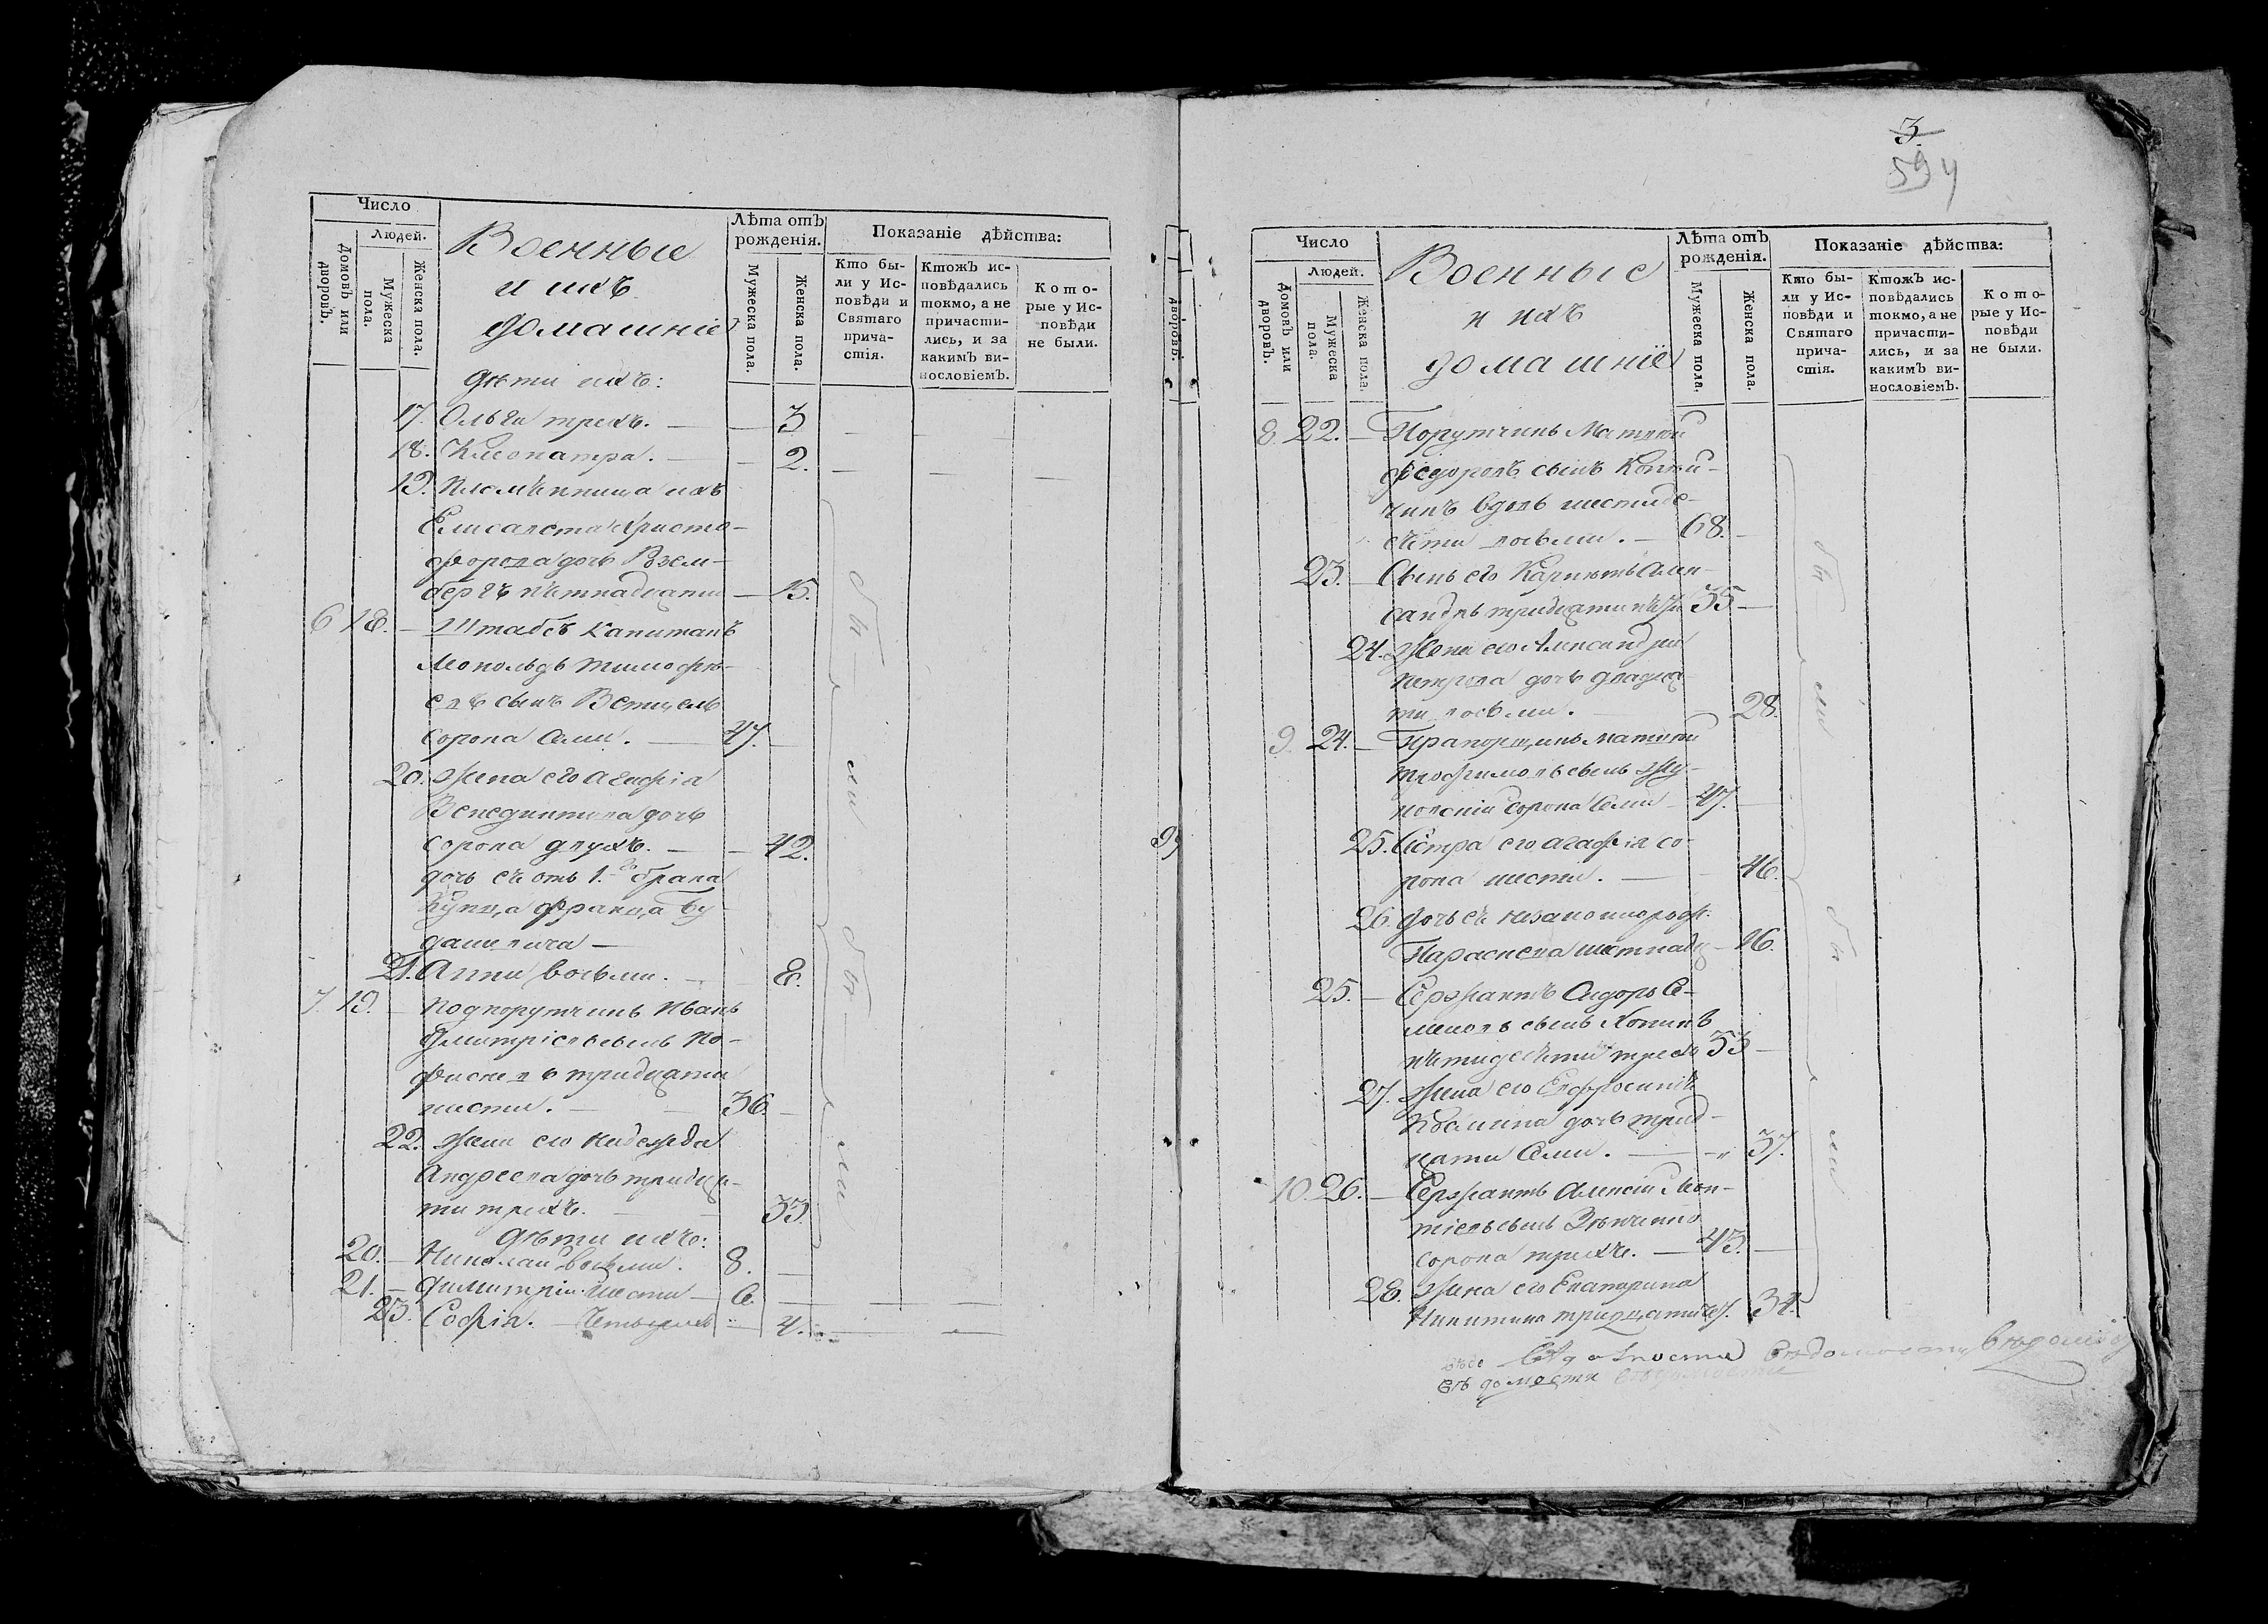 Число
Людей.
Домовъ или дворовъ.
Мужеска пола.
Женска пола.
Военные
и ихъ
домашніе
Лѣта отъ рожденія.
Мужеска пола.
Женска пола.
Показаніе дѣйства:
Кто были у Исповѣди и Святаго причастія.
Ктожъ исповѣдались токмо, а не причастились, и за какимъ винословіемъ.
Которые у Исповѣди не были.
дѣти ихъ:
17. Ольга трехъ. — — 3
18. Клеопатра. — — 2.
19. племянница ихъ
Елисавета Христо-
форова дочь Взем-
бергъ пятнадцати — 15.
6 18. — Штабсъ Капитанъ
Леопольдъ Тимофѣ-
евъ сынъ Ветцель
сорока семи. — 47. —
20. жена его Агафія
Венедиктова дочь
сорока двухъ. — — 42.
дочь ея отъ 1.го брака
Купца Франца Бу-
дашевича —
21. Анна восьми. — 8.
7. 19. — Подпорутчикъ Иванъ
Дмитріевъ сынъ По-
фискевъ тридцати
шести. — 36. —
22. жена его Надежда
Андреева дочь тридца-
ти трехъ. — 33.
дѣти ихъ:
20. — Николай восьми. 8. —
21. — Димитрій шести — 6. —
23. Софія. — Четырехъ — 4.
были были
3
594
Число
Людей.
Домовъ или дворовъ.
Мужеска пола.
Женска пола.
Военные
и ихъ
домашніе
Лѣта отъ рожденія.
Мужеска пола.
Женска пола.
Показаніе дѣйства:
Кто были у Исповѣди и Святаго причастія.
Ктожъ исповѣдались токмо, а не причастились, и за какимъ винословіемъ.
Которые у Исповѣди не были.
8. 22. — Порутчикъ Матвѣй
Ѳедоровъ сынъ
вдовъ шестиде-
сяти восьми. — 68. —
23. — Сынъ его Алек-
сандръ тридцати пяти 35 —
24. Жена его Александра
Петрова дочь двадца-
ти восьми. — 28.
9. 24. — Прапорщикъ Матвѣй
Трофимовъ сынъ Жу-
ковскій сорока семи — 47. —
25. Сестра его Агафія со-
рока шести. — 46.
26. дочь ея
Параскева шестнадц — 16.
25. — Сержантъ Сидоръ Се-
меновъ сынъ Копинъ
пятидесяти трехъ 53 —
27. жена его Евфросинія
дочь трид-
цати семи. — 37.
10. 26. — Сержантъ Алексій Леон-
тіевъ сынъ
сорока трехъ. — 43. —
28. жена его Екатерина
Никитина тридцати чет. 34.
были были
вѣдомости
вѣдомости